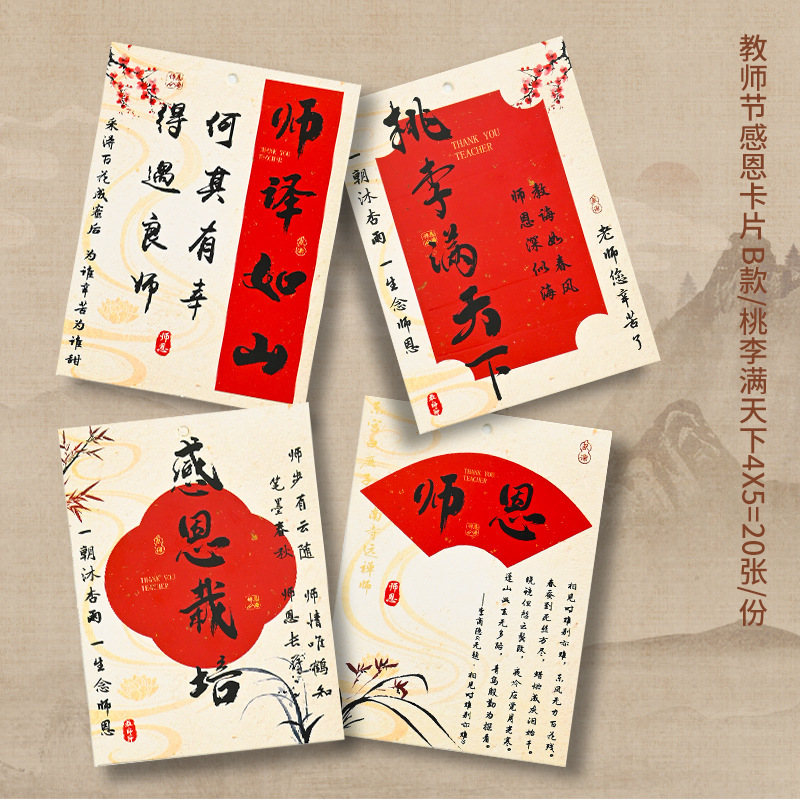 教师节感恩卡片 B款/桃李满天下4X5=20张/份
师译如山
THANK YOU
TEACHER
何其有幸
得遇良师
采得百花成蜜后 为谁辛苦为谁甜
师恩
桃李满天下
THANK YOU
TEACHER
教诲如春风
师恩深似海
老师您辛苦了
一朝沐杏雨 一生念师恩
感恩栽培
THANK YOU
TEACHER
师步有云随
笔墨春秋
师情唯鹤知
师恩长
一朝沐杏雨 一生念师恩
师恩
THANK YOU
TEACHER
师恩
相见时难别亦难，东风无力百花残。
春蚕到死丝方尽，蜡炬成灰泪始干。
晓镜但愁云鬓改，夜吟应觉月光寒。
蓬山此去无多路，青鸟殷勤为探看。
——李商隐《无题·相见时难别亦难》